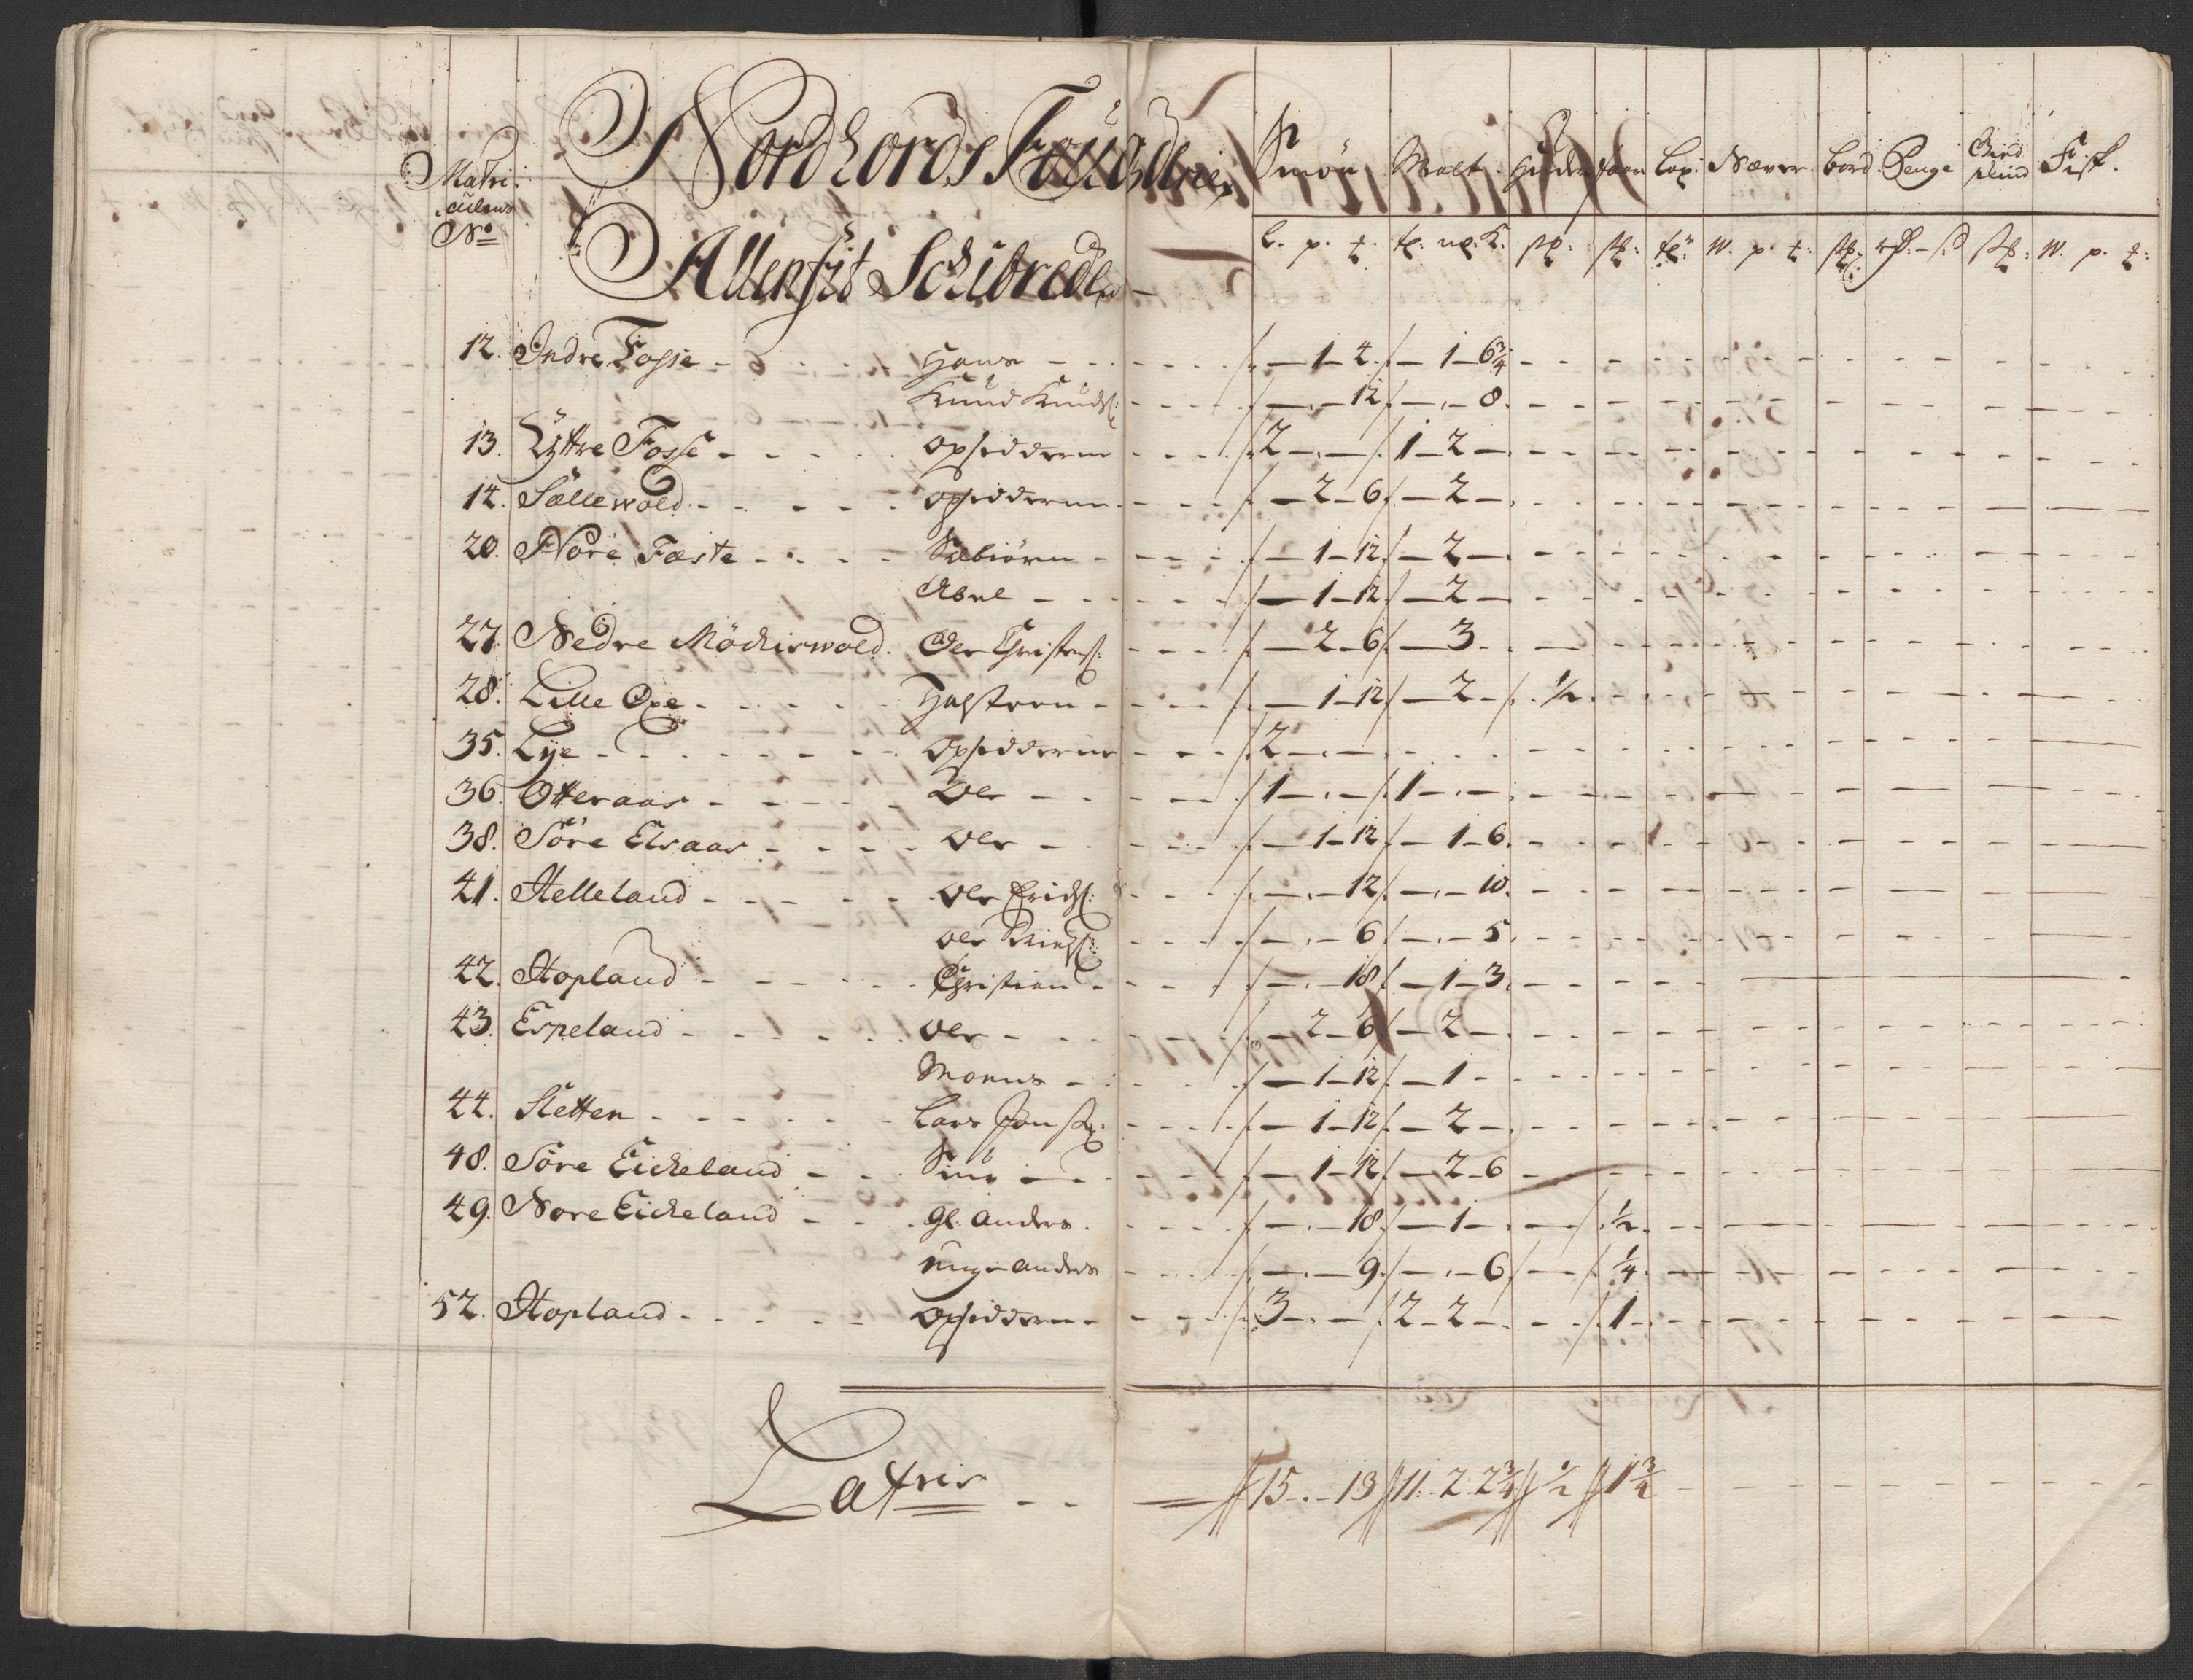 Nordhords Fougderie
Allenfit Schibrede
Matri-
culens
No
Smör Malt Huder Lax: Næver Bord Penge Fisk.
12. Indre Fosse - Hans - 1 - 4 - 1 - 6 3/4
Knud Knuds: - 12 - 8
13. Yttre Fosse - opsidderne 2 - 1 - 2
14. Sællewold - opsidderne - 2 - 6 - 2
20. Nore Fæste - Sæbiörn - 1 - 12 - 2
Abel - 1 - 12 - 2
27. Nedre Möckiswold. Ole Christens: - 2 - 6 - 3
28. Lille Oxe - Halsteen - 1 - 12 - 2 - 1/2
35. Lye - opsidderne 2
36. Otteraas - Ole - 1 - 1
38. Söre Elsaas - Ole - 1 - 12 - 1 - 6
41. Helleland - Ole Erichs: - 12 - 10
Ole - 6 - 5
42. Hopland - Christian - 18 - 1 - 3
43. Espeland - Ole - 2 - 6 - 2
Monns - 1 - 12 - 1
44. Sletten - Lars Jons: - 1 - 12 - 2
48. Söre Eicheland - 1 - 12 - 2 - 6
49. Nore Eicheland - gl: Anders - 18 - 1 - 1/2
unge Anders - 9 - 6 - 1/4
52. Hopland - opsidderne - 3 - 2 - 2 - 1
Latris - 15 - 13 11 - 2 - 2 3/4 1/2 1 3/4